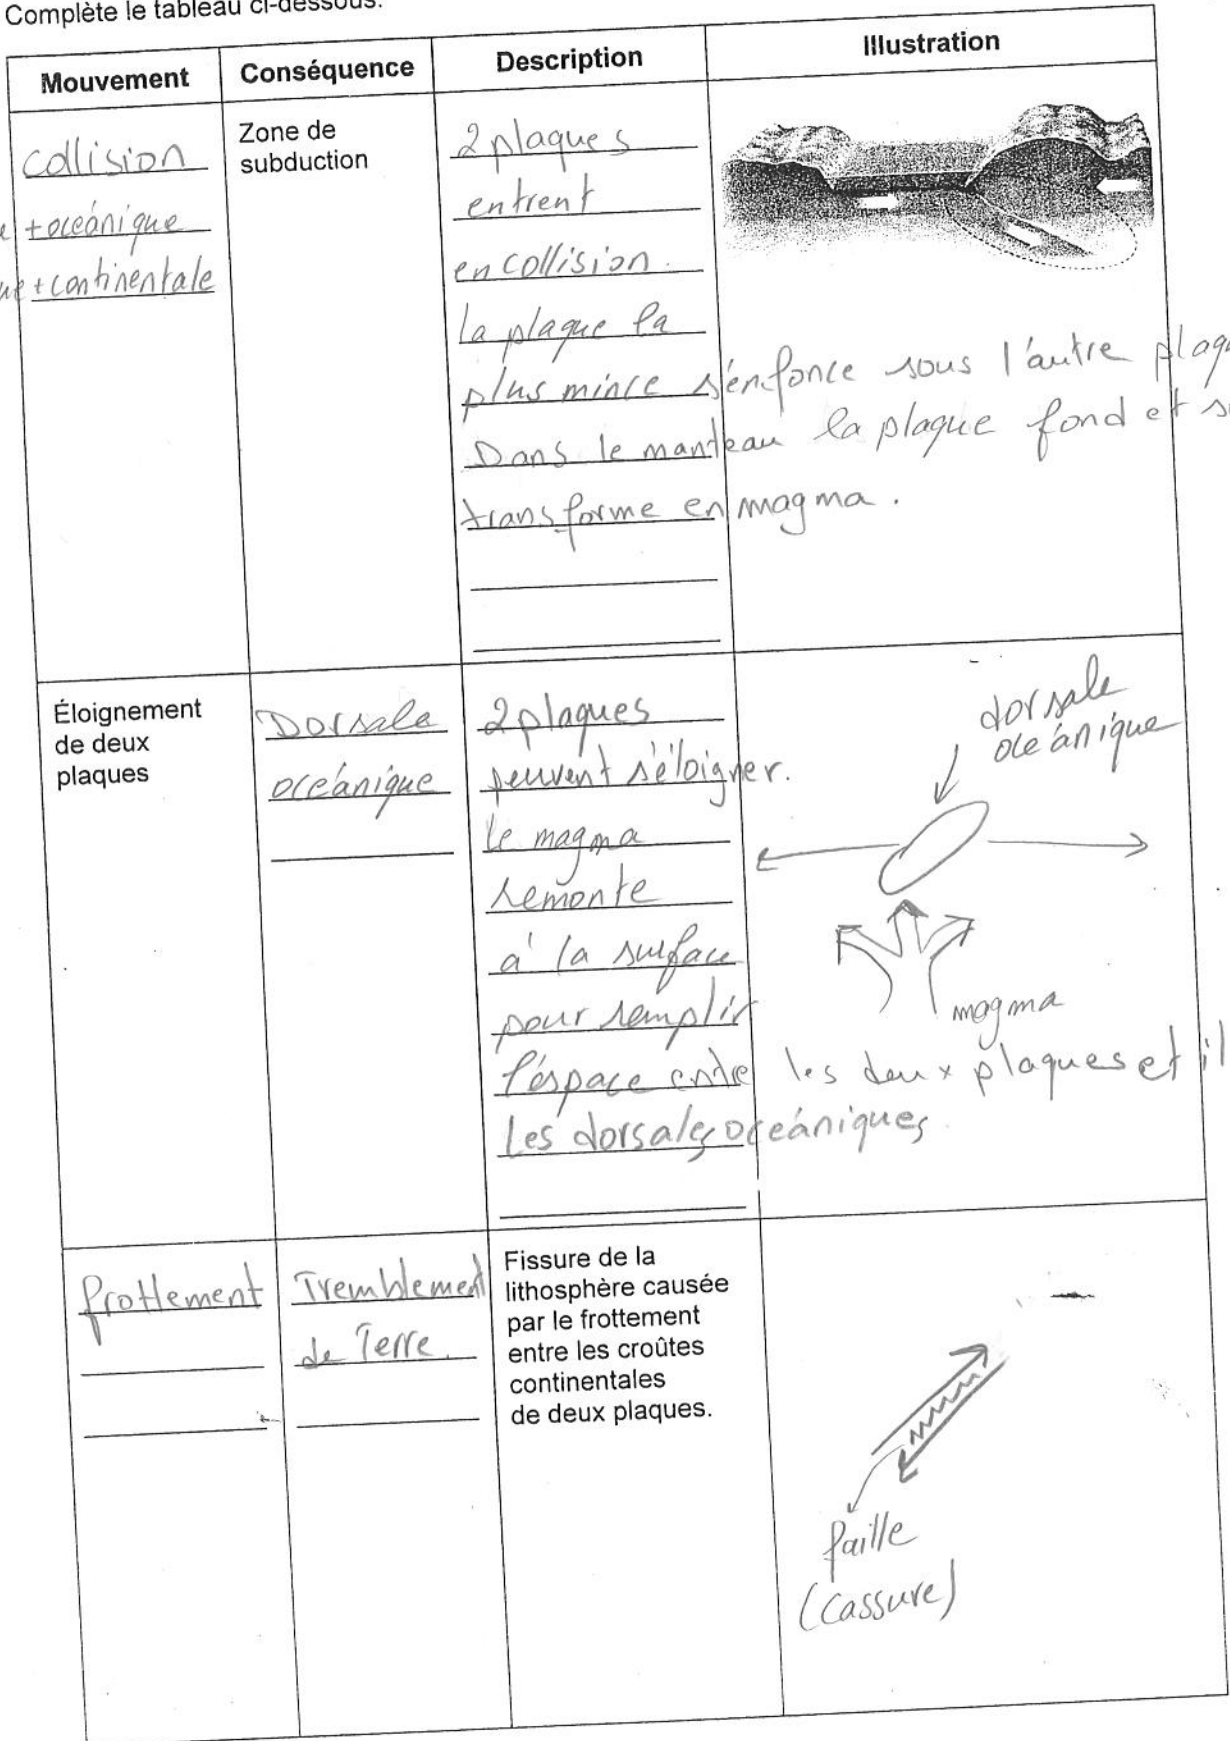 Complète le tableau ci-dessous.
Mouvement
Conséquence
Description
Illustration
collision
+océanique
+continentale
Zone de
subduction
2 plaques
entrent
en collision.
la plaque la
plus mince s'enfonce sous l'autre
Dans le manteau la plaque fond et
transforme en magma.
Éloignement
de deux
plaques
Dorsale
océanique
2 plaques
peuvent s'éloigner.
le magma
remonte
à la surface
pour remplir
l'espace entre les deux plaques et il
Les dorsales océaniques.
dorsale
océanique
magma
frottement
Tremblement
de Terre.
Fissure de la
lithosphère causée
par le frottement
entre les croûtes
continentales
de deux plaques.
faille
(cassure)